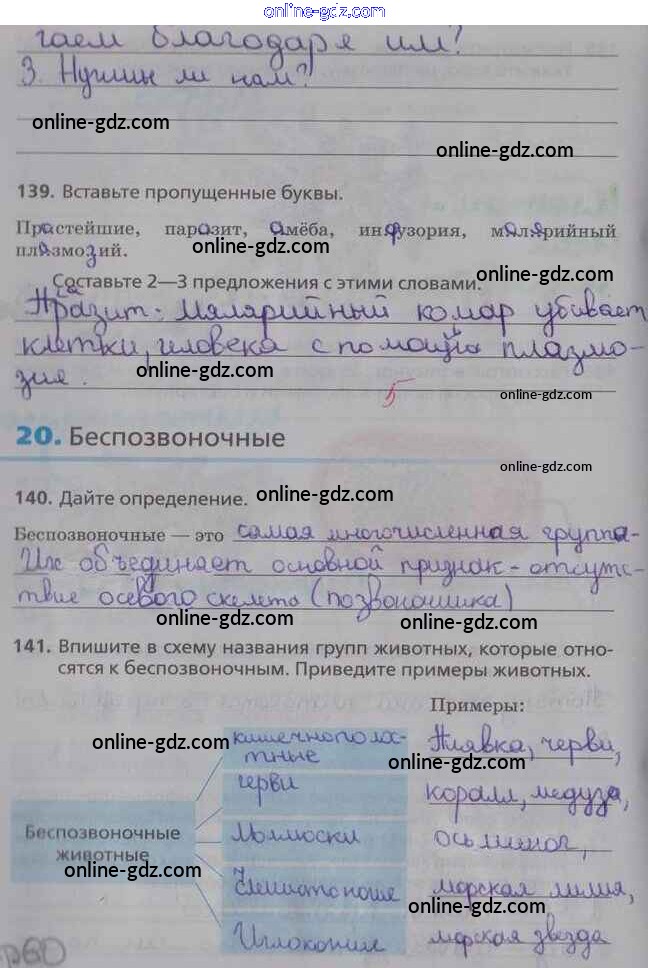 online-gdz.com
гаем благодаря им?
3. Нужны ли нам?
online-gdz.com
online-gdz.com
139. Вставьте пропущенные буквы.
Простейшие, паразит, амёба, инфузория, малярийный
плазмозий.
online-gdz.com
Составьте 2—3 предложения с этими словами.
online-gdz.com
Паразит - Малярийный комар убивает
клетки, человека с помощью плазмо-
зия.
online-gdz.com
5
online-gdz.com
20. Беспозвоночные
online-gdz.com
140. Дайте определение.
online-gdz.com
Беспозвоночные — это самая многочисленная группа-
Их объединает основной признак - отсутс-
твие осевого скелета (позвоношика)
online-gdz.com
141. Впишите в схему названия групп животных, которые отно-
сятся к беспозвоночным. Приведите примеры животных.
Примеры:
online-gdz.com
кишечнополос-
тные
Пиявка, черви,
online-gdz.com
черви
коралл, медуза,
Беспозвоночные
животные
Моллюски
осьминог,
online-gdz.com
морская лилия,
online-gdz.com
Иглокожие
морская звезда